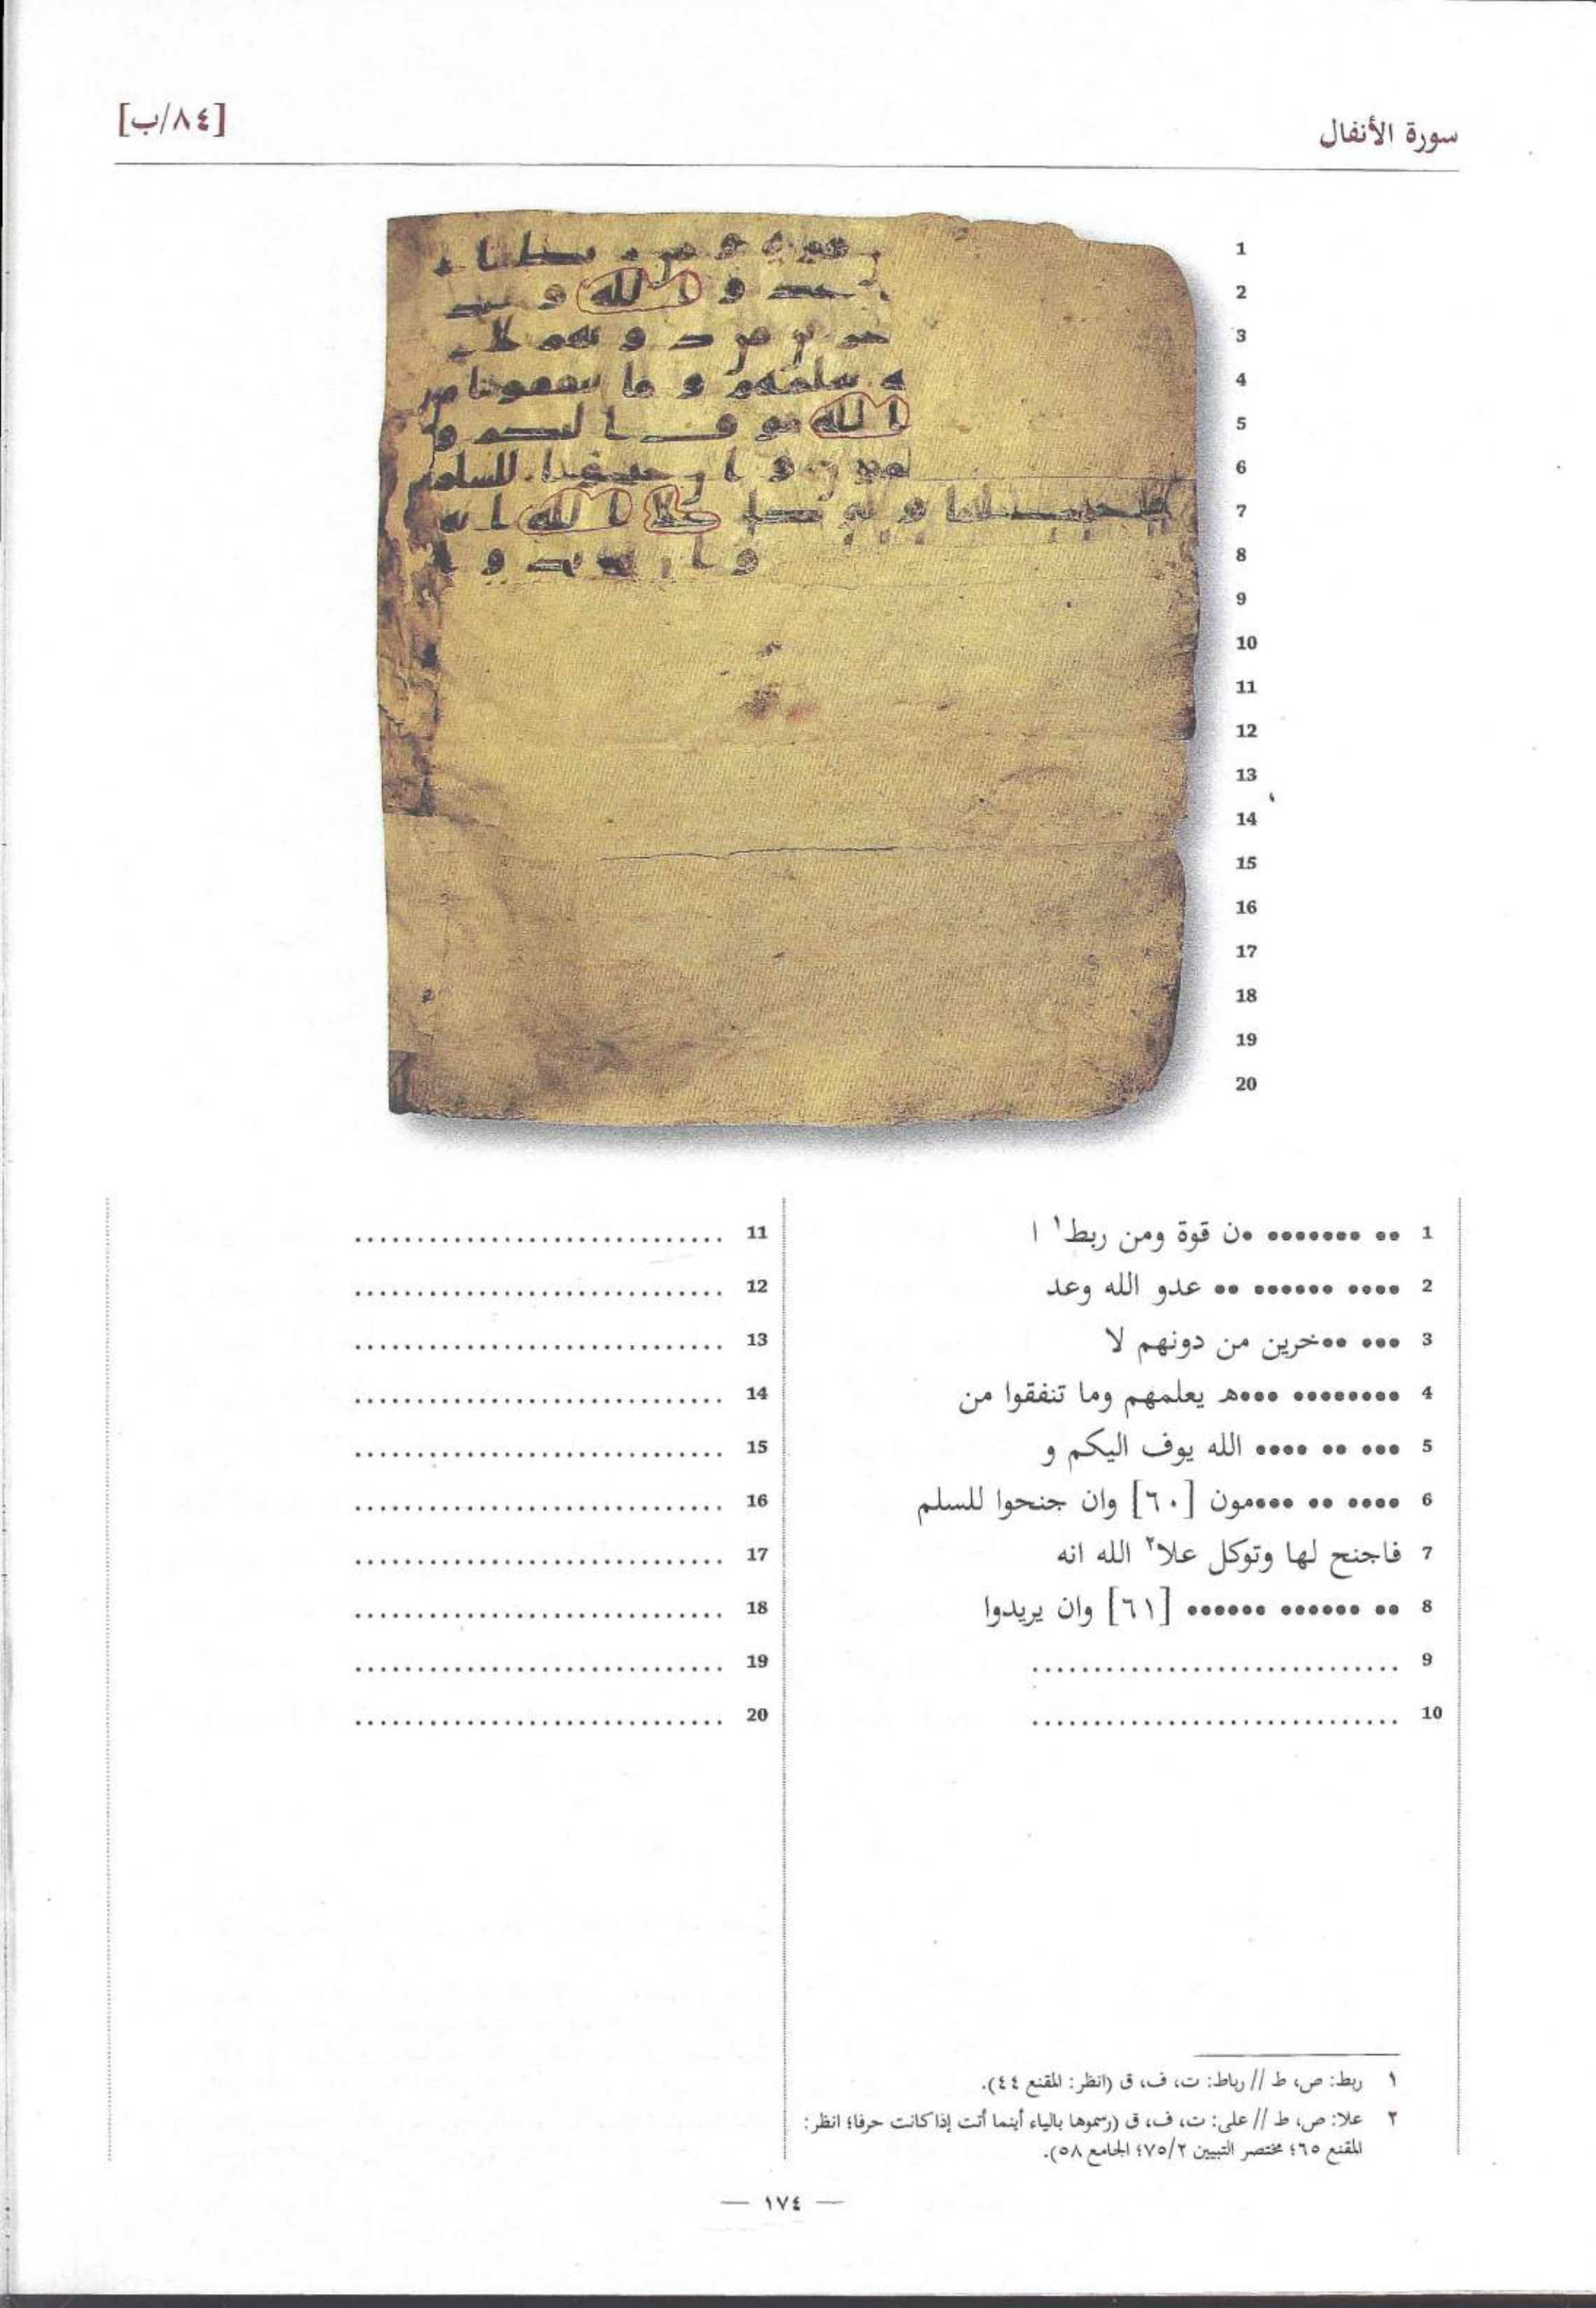 سورة الأنفال
[٨٤/ب]
1
2
3
4
5
6
7
8
9
10
11
12
13
14
15
16
17
18
19
20
1 •• ••••••• •ن قوة ومن ربط١ ا
2 •••• •••••• •• عدو الله وعد
3 ••• ••خرين من دونهم لا
4 •••••••• •••ه‍ يعلمهم وما تنفقوا من
5 ••• •• •••• الله يوف اليكم و
6 •••• •• •••مون [٦٠] وان جنحوا للسلم
7 فاجنح لها وتوكل علا٢ الله انه
8 •• •••••• •••••• [٦١] وان يريدوا
9 ..............................
10 ..............................
11 ..............................
12 ..............................
13 ..............................
14 ..............................
15 ..............................
16 ..............................
17 ..............................
18 ..............................
19 ..............................
20 ..............................
١ ربط: ص، ط // رباط: ت، ف، ق (انظر: المقنع ٤٤).
٢ علا: ص، ط // على: ت، ف، ق (رسموها بالياء أينما أتت إذا كانت حرفا؛ انظر:
المقنع ٦٥؛ مختصر التبيين ٧٥/٢؛ الجامع ٥٨).
— ١٧٤ —